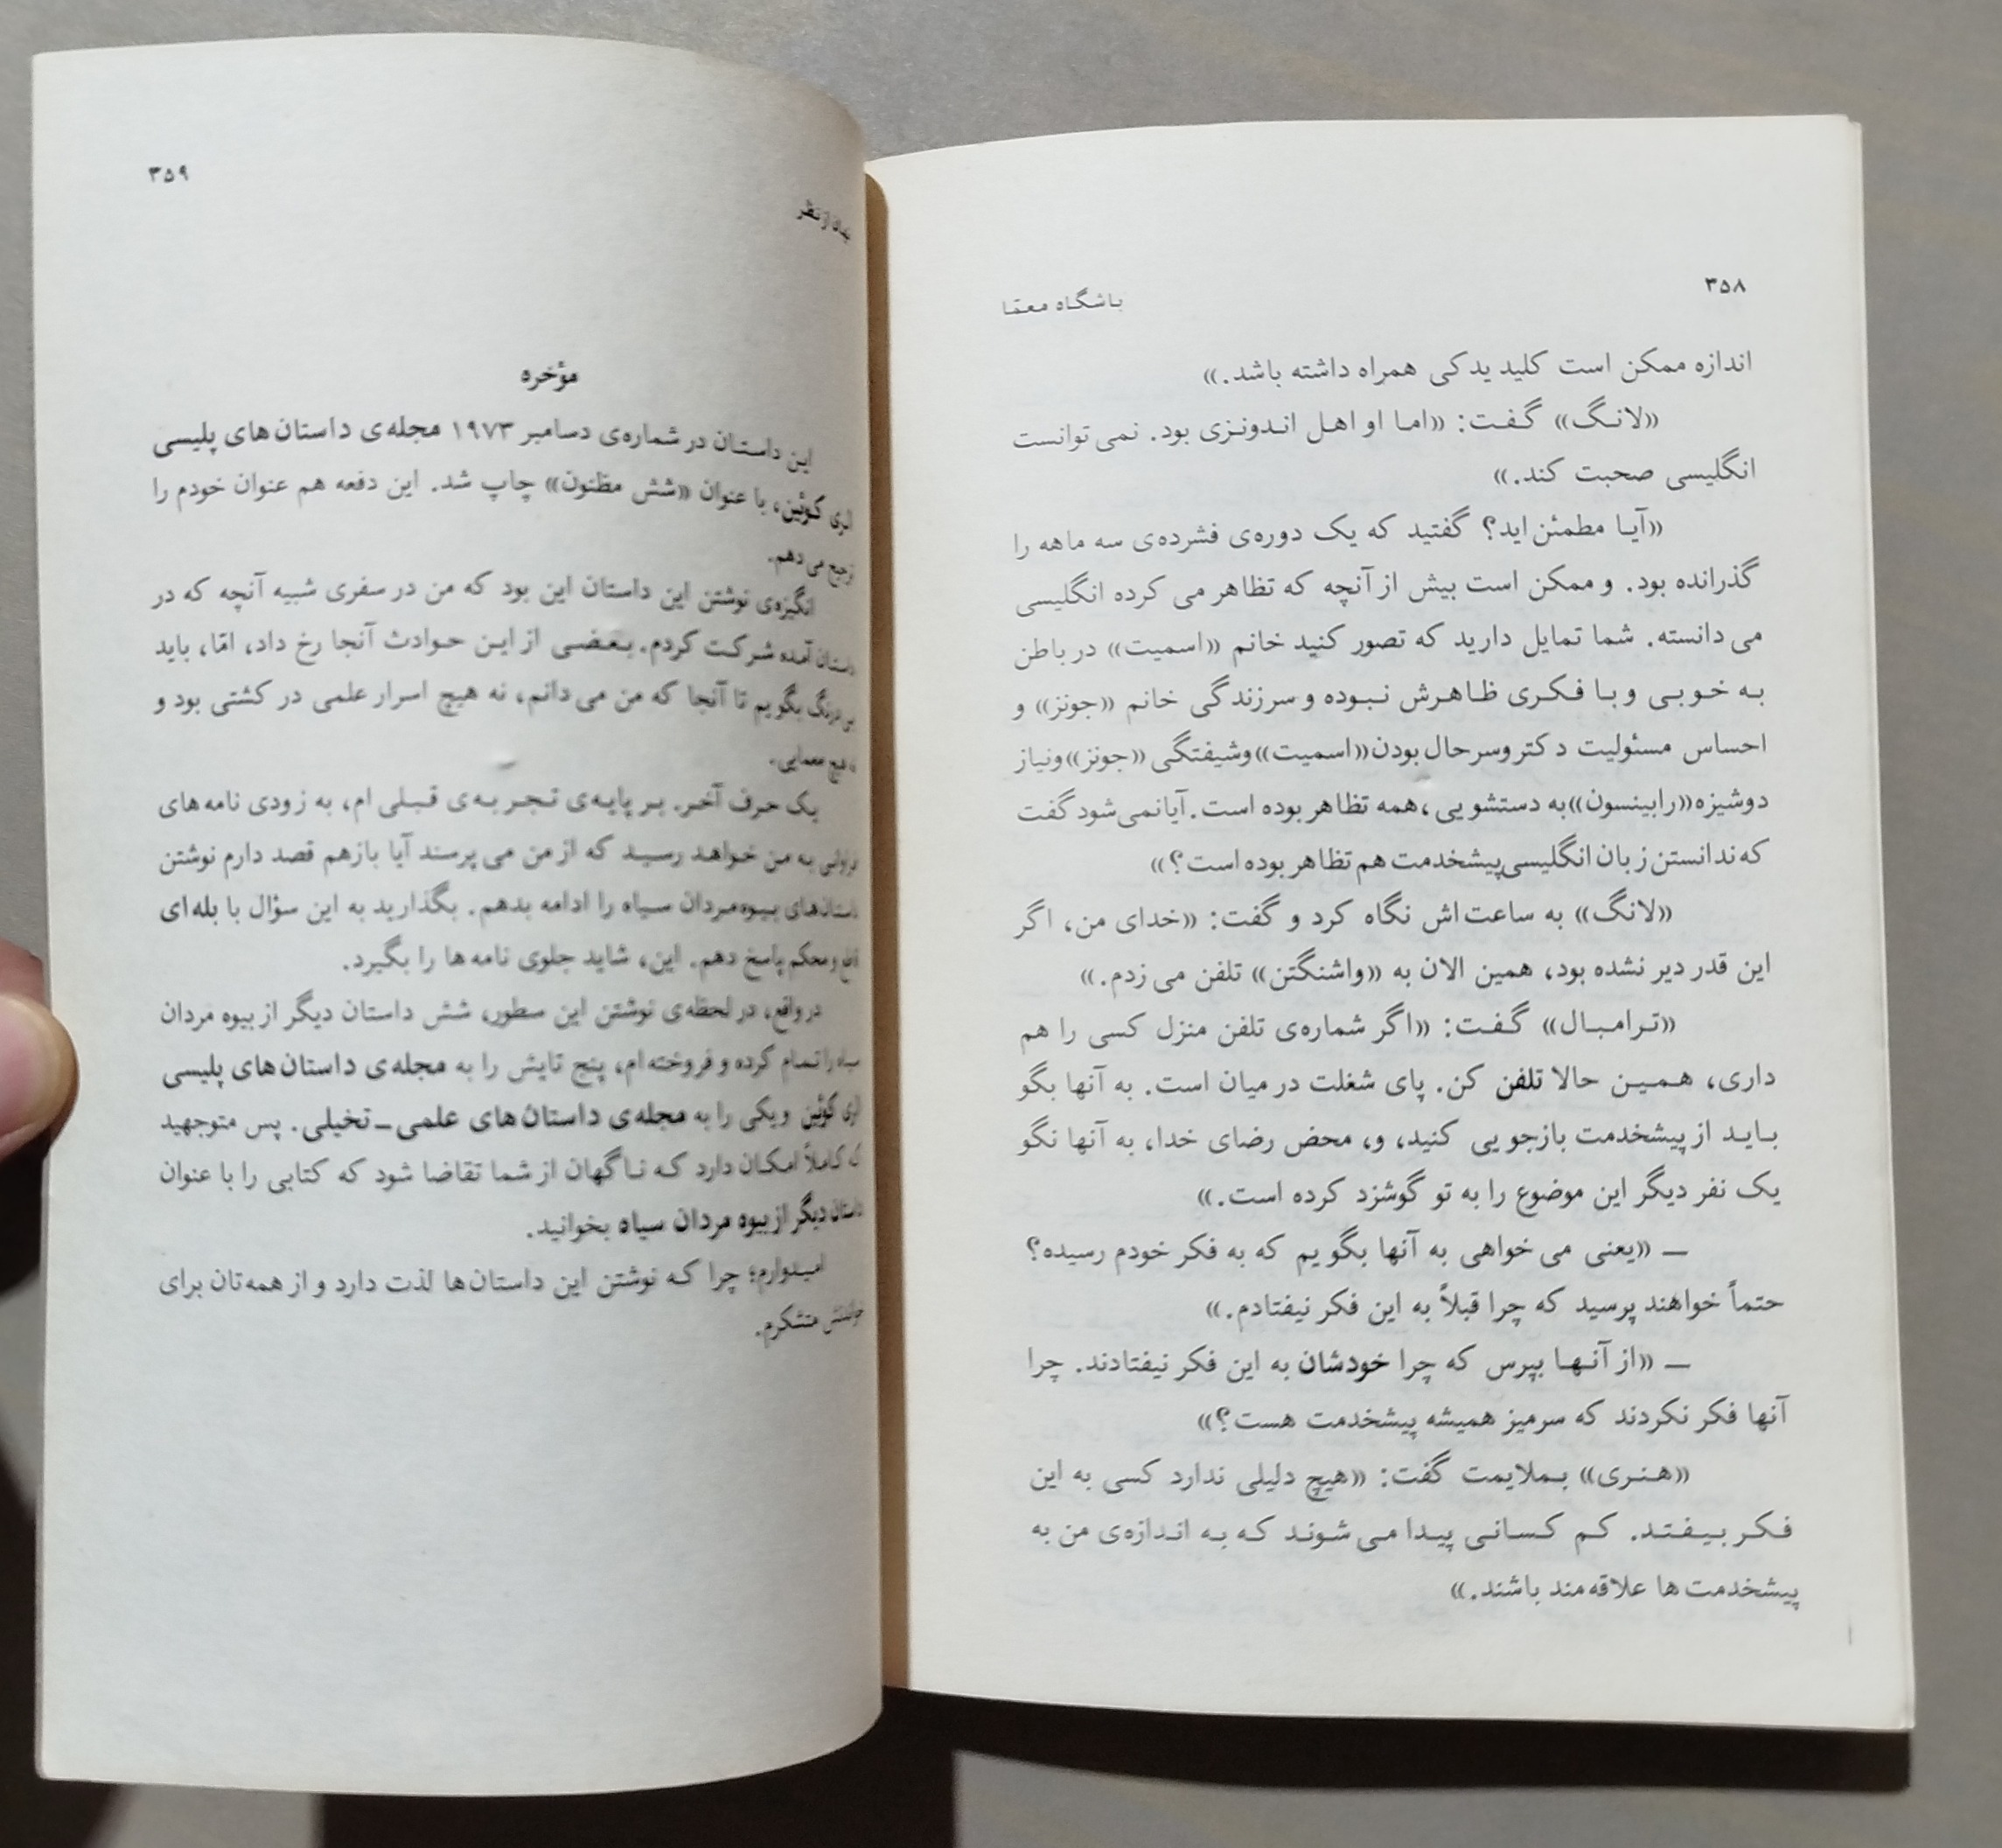 ۳۵۸
باشگاه معمّا
اندازه ممکن است کلید یدکی همراه داشته باشد.»
«لانگ» گفت: «اما او اهل اندونزی بود. نمی‌توانست
انگلیسی صحبت کند.»
«آیا مطمئن‌اید؟ گفتید که یک دوره‌ی فشرده‌ی سه ماهه را
گذرانده بود. و ممکن است بیش از آنچه که تظاهر می کرده انگلیسی
می‌دانسته. شما تمایل دارید که تصور کنید خانم «اسمیت» در باطن
به خوبی و با فکری ظاهرش نبوده و سرزندگی خانم «جونز» و
احساس مسئولیت دکتر و سرحال بودن «اسمیت» و شیفتگی «جونز» و نیاز
دوشیزه «رابینسون» به دستشویی، همه تظاهر بوده است. آیا نمی‌شود گفت
که ندانستن زبان انگلیسی پیشخدمت هم تظاهر بوده است؟»
«لانگ» به ساعت‌اش نگاه کرد و گفت: «خدای من، اگر
این قدر دیر نشده بود، همین الان به «واشنگتن» تلفن می زدم.»
«ترامبال» گفت: «اگر شماره‌ی تلفن منزل کسی را هم
داری، همین حالا تلفن کن. پای شغلت در میان است. به آنها بگو
باید از پیشخدمت بازجویی کنید، و، محض رضای خدا، به آنها نگو
یک نفر دیگر این موضوع را به تو گوشزد کرده است.»
ـ «یعنی می خواهی به آنها بگویم که به فکر خودم رسیده؟
حتماً خواهند پرسید که چرا قبلاً به این فکر نیفتادم.»
ـ «از آنها بپرس که چرا خودشان به این فکر نیفتادند. چرا
آنها فکر نکردند که سرمیز همیشه پیشخدمت هست؟»
«هنری» بملایمت گفت: «هیچ دلیلی ندارد کسی به این
فکر بیفتد. کم کسانی پیدا می‌شوند که به اندازه‌ی من به
پیشخدمت ها علاقه‌مند باشند.»
از نظر
۳۵۹
مؤخره
این داستان در شماره‌ی دسامبر ۱۹۷۳ مجله‌ی داستان‌های پلیسی
الری کوئین، با عنوان «شش مظنون» چاپ شد. این دفعه هم عنوان خودم را
ترجیح می‌دهم.
انگیزه‌ی نوشتن این داستان این بود که من در سفری شبیه آنچه که در
داستان آمده شرکت کردم. بعضی از این حوادث آنجا رخ داد، امّا، باید
بی‌درنگ بگویم تا آنجا که من می‌دانم، نه هیچ اسرار علمی در کشتی بود و
نه هیچ معمایی.
یک حرف آخر. بر پایه‌ی تجربه‌ی قبلی ام، به زودی نامه‌های
فراوانی به من خواهد رسید که از من می پرسند آیا بازهم قصد دارم نوشتن
داستان‌های بیوه‌مردان سیاه را ادامه بدهم. بگذارید به این سؤال با بله‌ای
و محکم پاسخ دهم. این، شاید جلوی نامه‌ها را بگیرد.
در واقع، در لحظه‌ی نوشتن این سطور، شش داستان دیگر از بیوه مردان
سیاه را تمام کرده و فروخته‌ام، پنج تایش را به مجله‌ی داستان‌های پلیسی
الری کوئین و یکی را به مجله‌ی داستان های علمی ـ تخیلی. پس متوجهید
که کاملاً امکان دارد که ناگهان از شما تقاضا شود که کتابی را با عنوان
داستان دیگر از بیوه مردان سیاه بخوانید.
امیدوارم؛ چرا که نوشتن این داستان‌ها لذت دارد و از همه‌تان برای
خواندنش متشکرم.